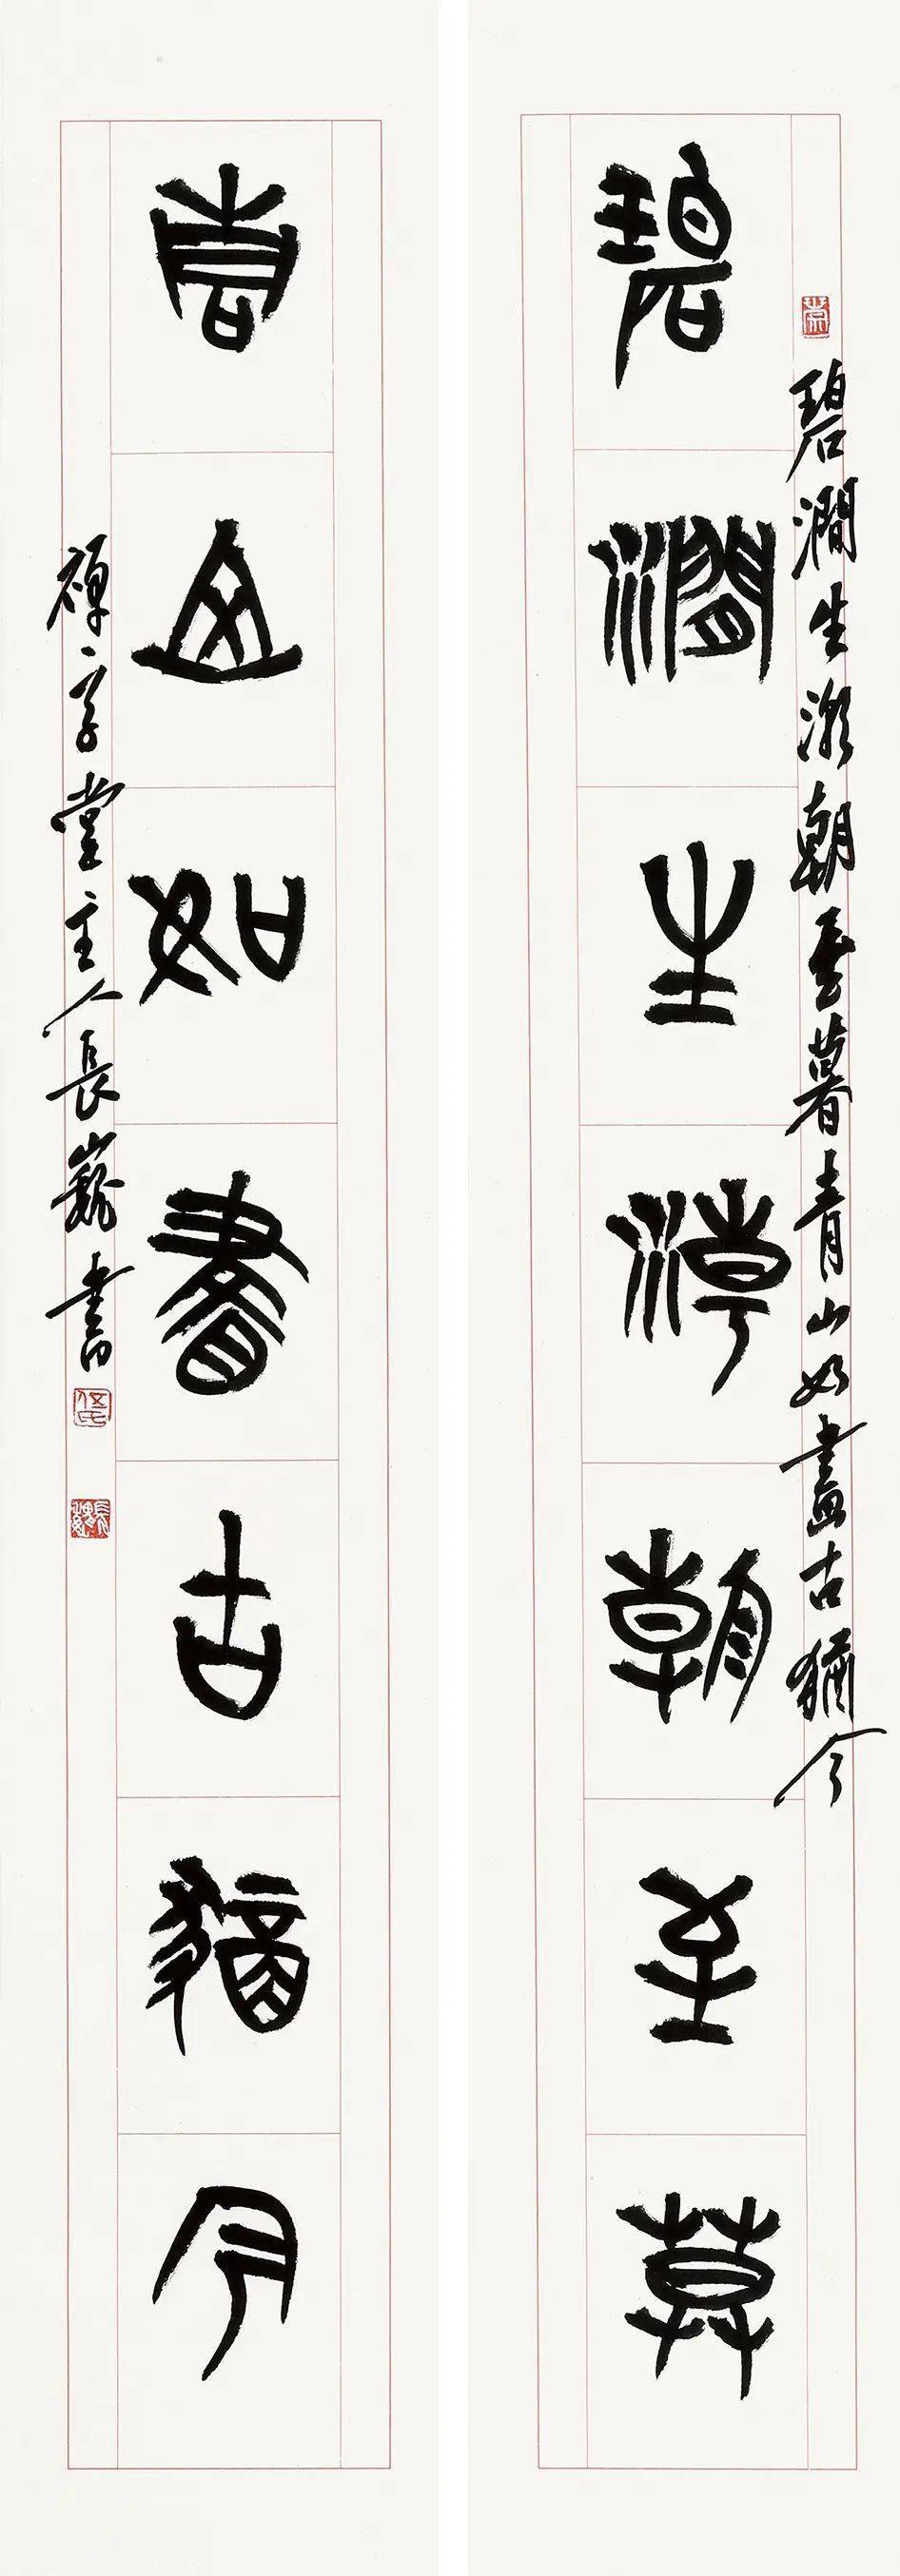 碧澗生潮朝至暮青山如畫古猶今
碧澗生潮朝至暮
青山如畫古猶今
禪堂主人長巍書